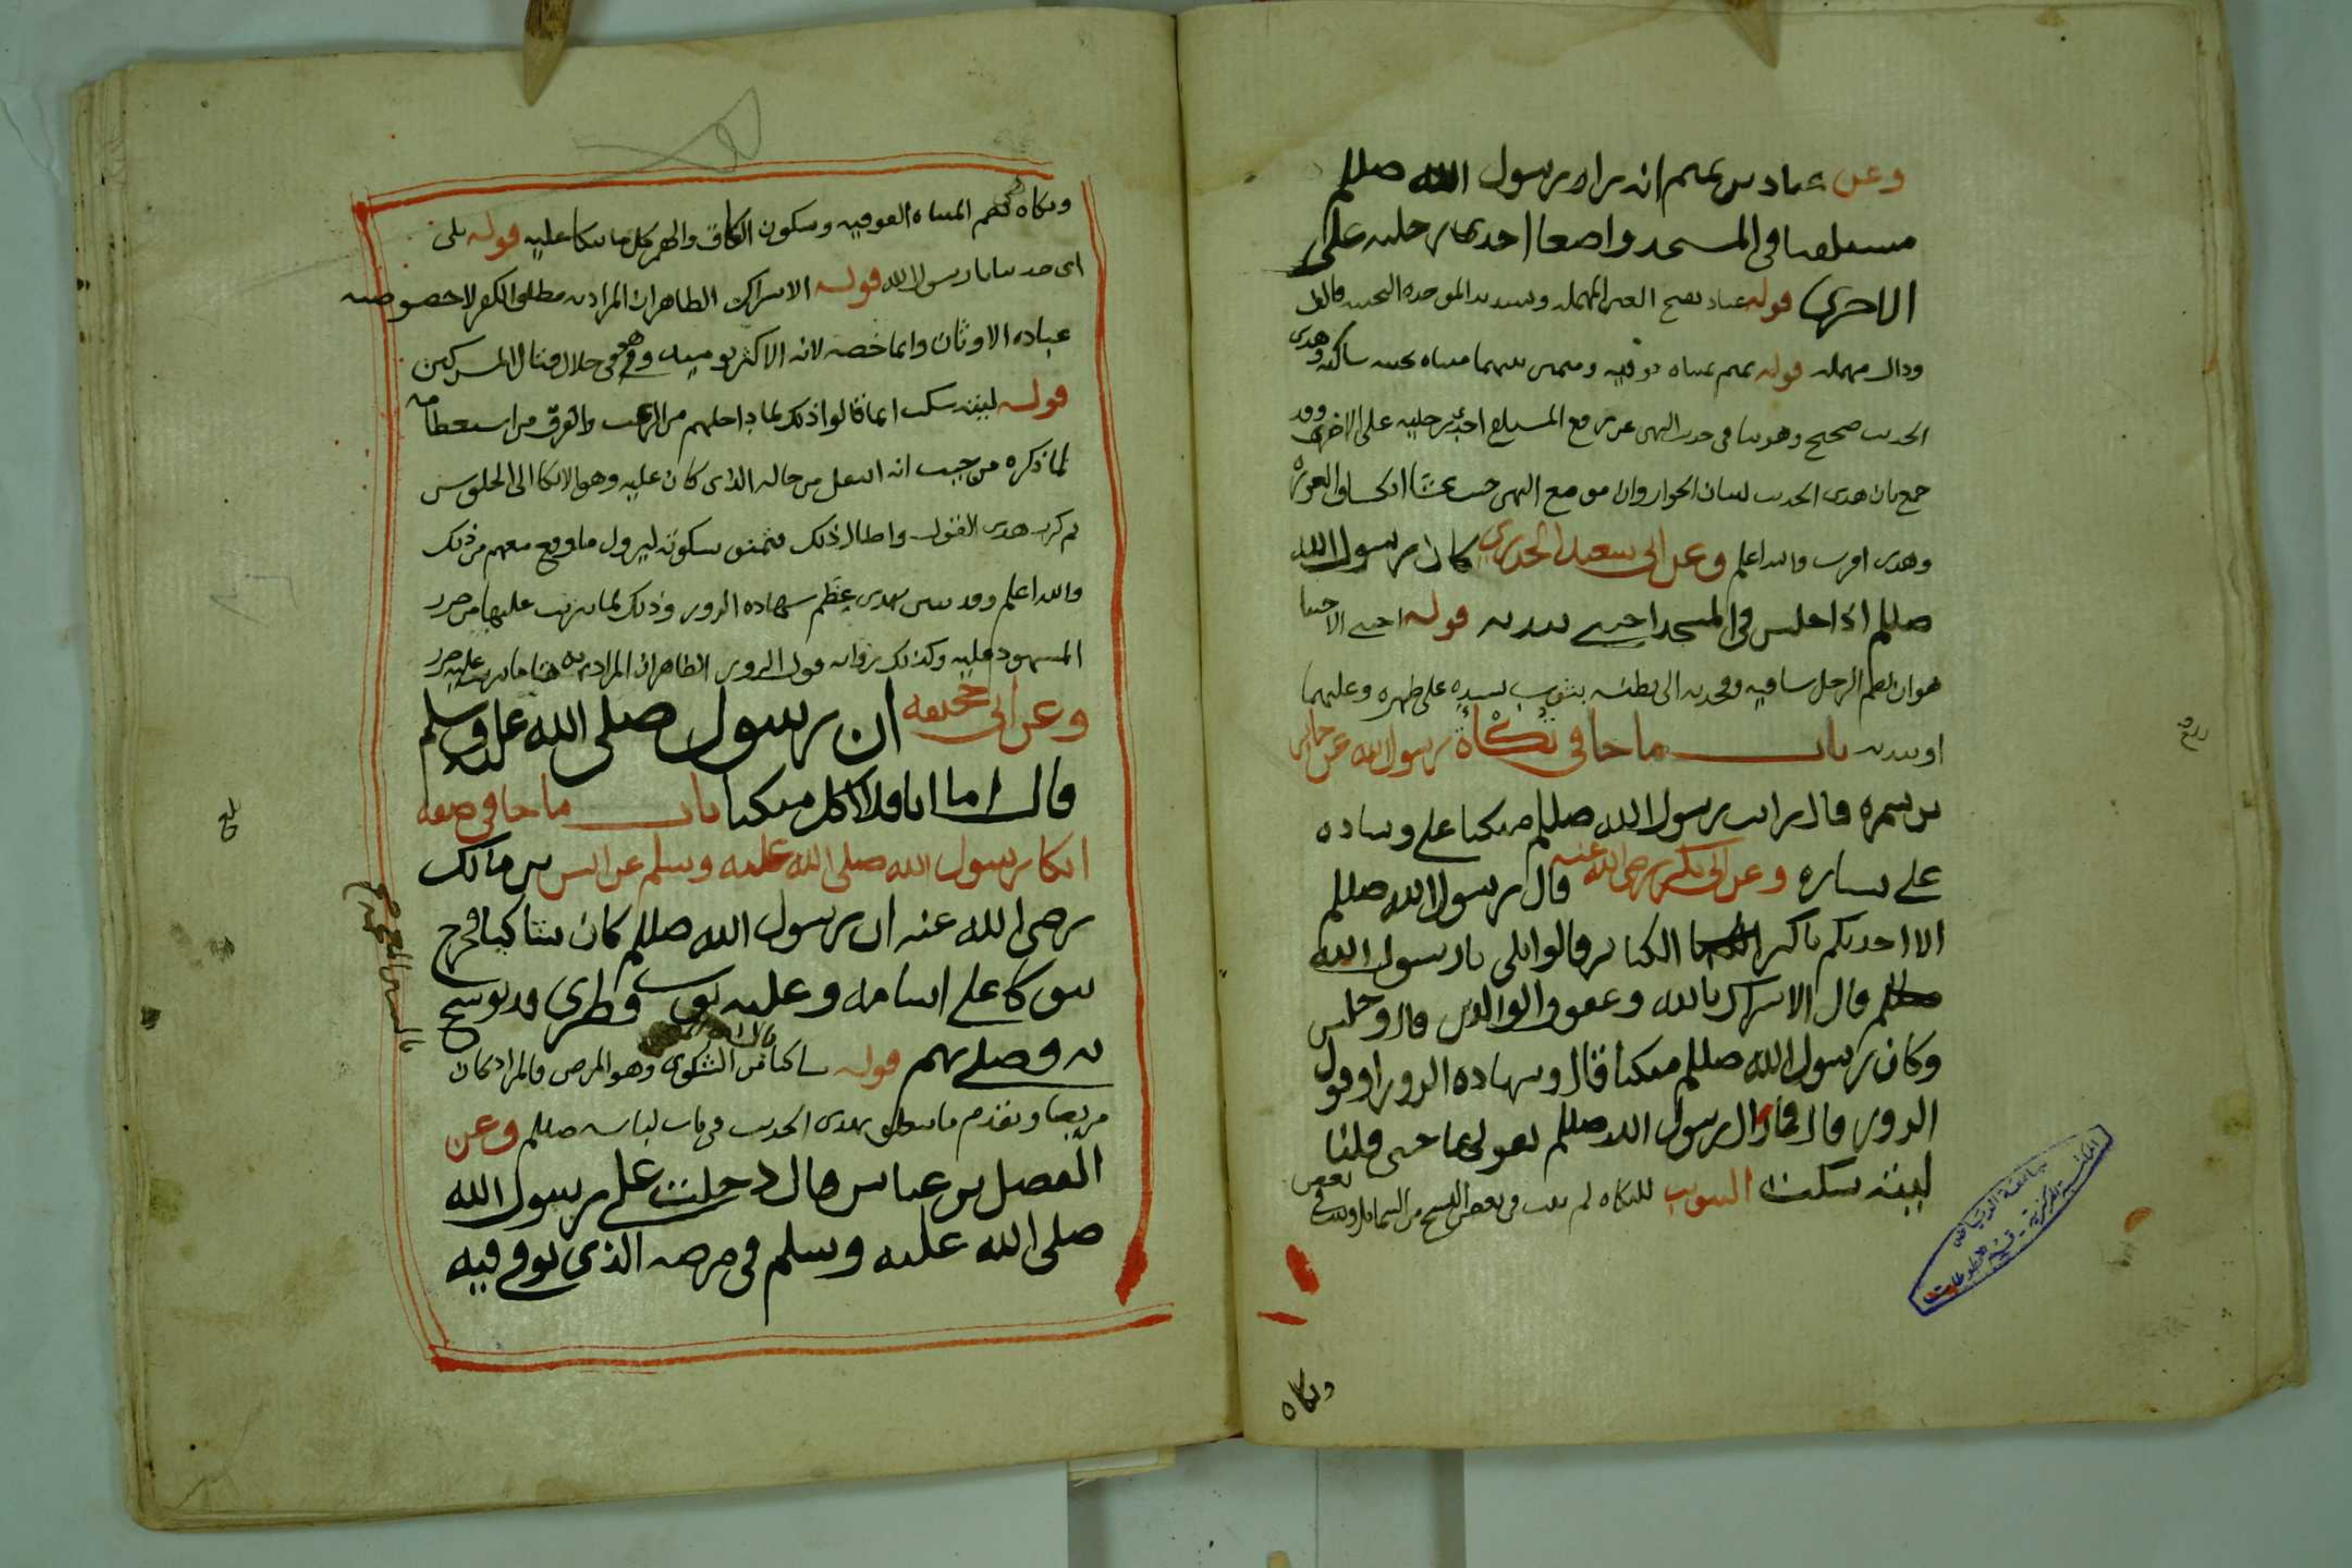 وعن عباد بن تميم انه راى رسول الله صللم
مستلقيا في المسجد واضعا احدى رجليه على
الاخرى قوله عباد بفتح العين المهمله وتشديد الموحده التحتيه فالف
ودال مهمله قوله تميم بمثناه فوقيه وميمين بينهما مثناه تحتيه ساكنه وهدى
الحديث صحيح وهو ينافى حديث النهى عن رفع المستلقى احدى رجليه على الاخرى وقد
جمع بان هدى الحديث لبيان الجواز وان موضع النهى حيث يخشا انكشاف العوره
وهدى اقرب والله اعلم وعن ابى سعيد الخدرى كان رسول الله
صللم اذا جلس في المسجد احتبى بيديه قوله احتبى الاحتبا
هو ان يضم الرجل ساقيه وفخديه الى بطنه بثوب يشده على ظهره وعليهما
او بيديه باب ما جا في تُكْأَة رسول الله عن جابر
بن سمره قال رايت رسول الله صللم متكيا على وساده
على يساره وعن ابى بكره رضى الله عنه قال رسول الله صللم
الا احدثكم باكبر الكبائر قالوا بلى يارسول الله
صللم قال الاشراك بالله وعقوق الوالدين قال وجلس
وكان رسول الله صللم متكيا قال وشهاده الزور او قول
الزور قال فمازال رسول الله صللم يقولها حتى قلنا
ليته سكت التبويب للتكاه لم يثبت فى بعض النسخ من الشمايل وثبت في بعض
وتكاه
وتكاه بضم المثناه الفوقيه وسكون الكاف والهمز كل ما يتكا عليه قوله بلى
اى حدثنا يارسول الله قوله الاشراك الظاهر ان المراد به مطلق الكفر لا خصوصيه
عباده الاوثان وانما خصه لانه الاكثر يوميد وفى خلال قتال المشركين
قوله ليته سكت انما قالوا ذلك لما داخلهم من الرعب والفرق من استعظامه
لما ذكره من حيث انه انتقل من حاله الذى كان عليه وهو الاتكا الى الجلوس
ثم كرر هدى القول واطال ذلك فتمنوا سكوته ليزول ما وقع معهم من ذلك
والله اعلم وقد بين بهدى عِظَم شهاده الزور وذلك لما يترتب عليها من ضرر
المشهود عليه وكذلك روايه قول الزور الظاهر ان المراد به هنا ما يترتب عليه ضرر
وعن ابى جحيفه ان رسول صلى الله عليه وسلم
قال اما انا فلا آكل متكيا باب ما جا في صفه
اتكا رسول الله صلى الله عليه وسلم عن انس بن مالك
رضى الله عنه ان رسول الله صللم كان شاكيا فخرج
يتوكا على اسامه وعليه ثوب قطرى قد توشح
به فصلى بهم قوله شاكيا من الشكوى وهو المرض والمراد كان
مريضا وتقدم ما يتعلق بهدى الحديث فى باب لباسه صللم وعن
الفضل بن عباس قال دخلت على رسول الله
صلى الله عليه وسلم في مرضه الذى توفى فيه
بلغ
جامعة الرياض
المكتبة المركزية - قسم المخطوطات